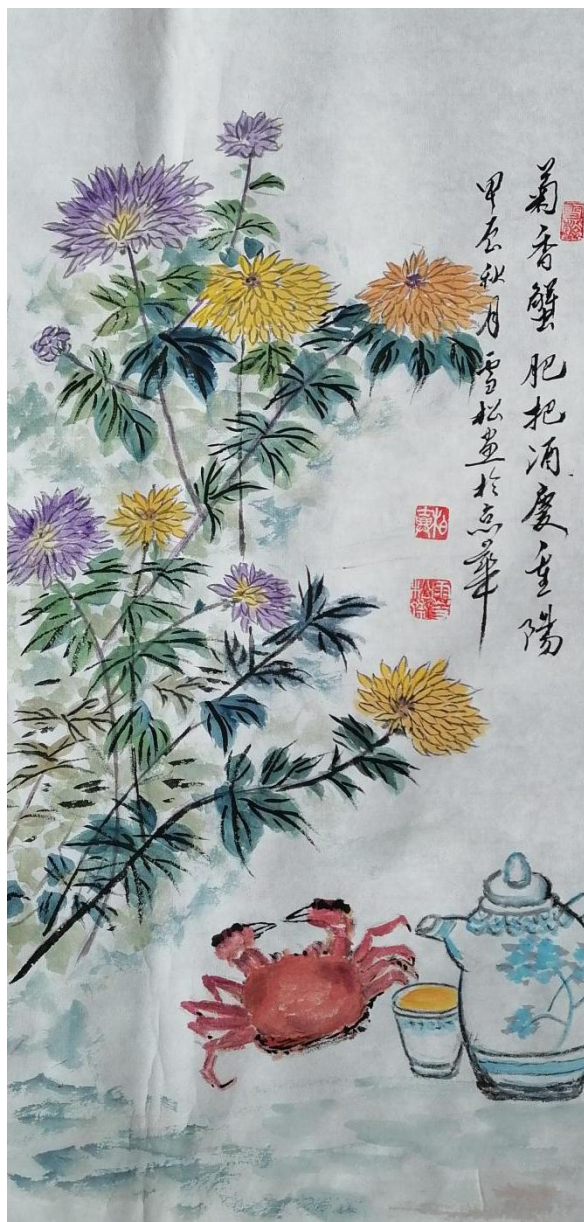 菊香蟹肥把酒慶重陽
甲辰秋月雪松畫於京華